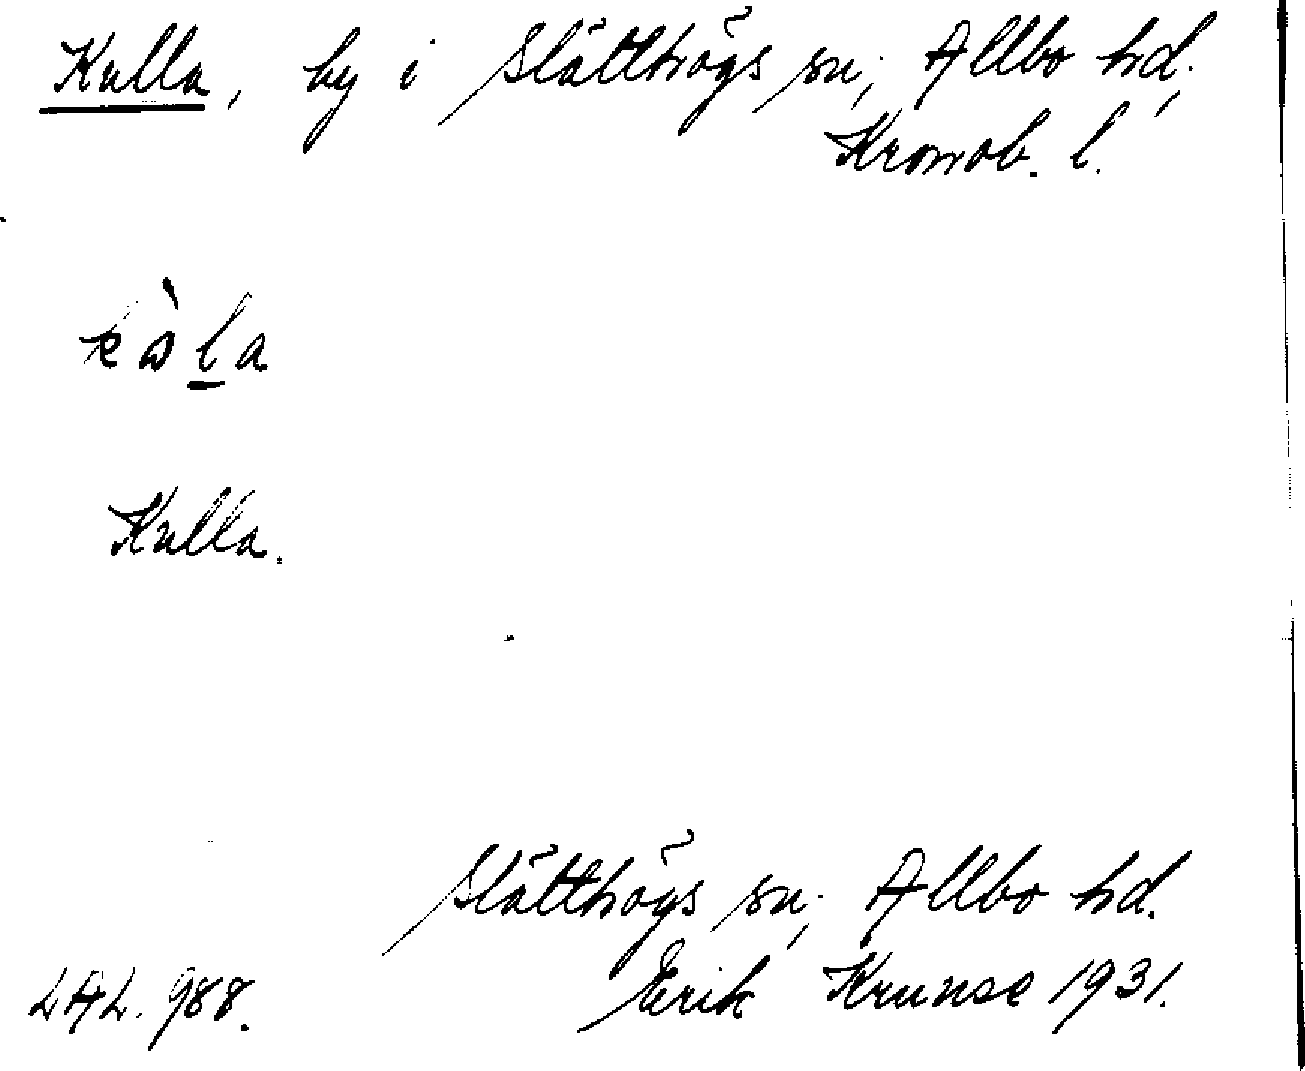 Kulla, by i Slätthögs sn; Allbo hd;
Kronob. l.
kòla
Kulla.
Slätthögs sn; Allbo hd.
LAL. 988. Erik Krunse 1931.